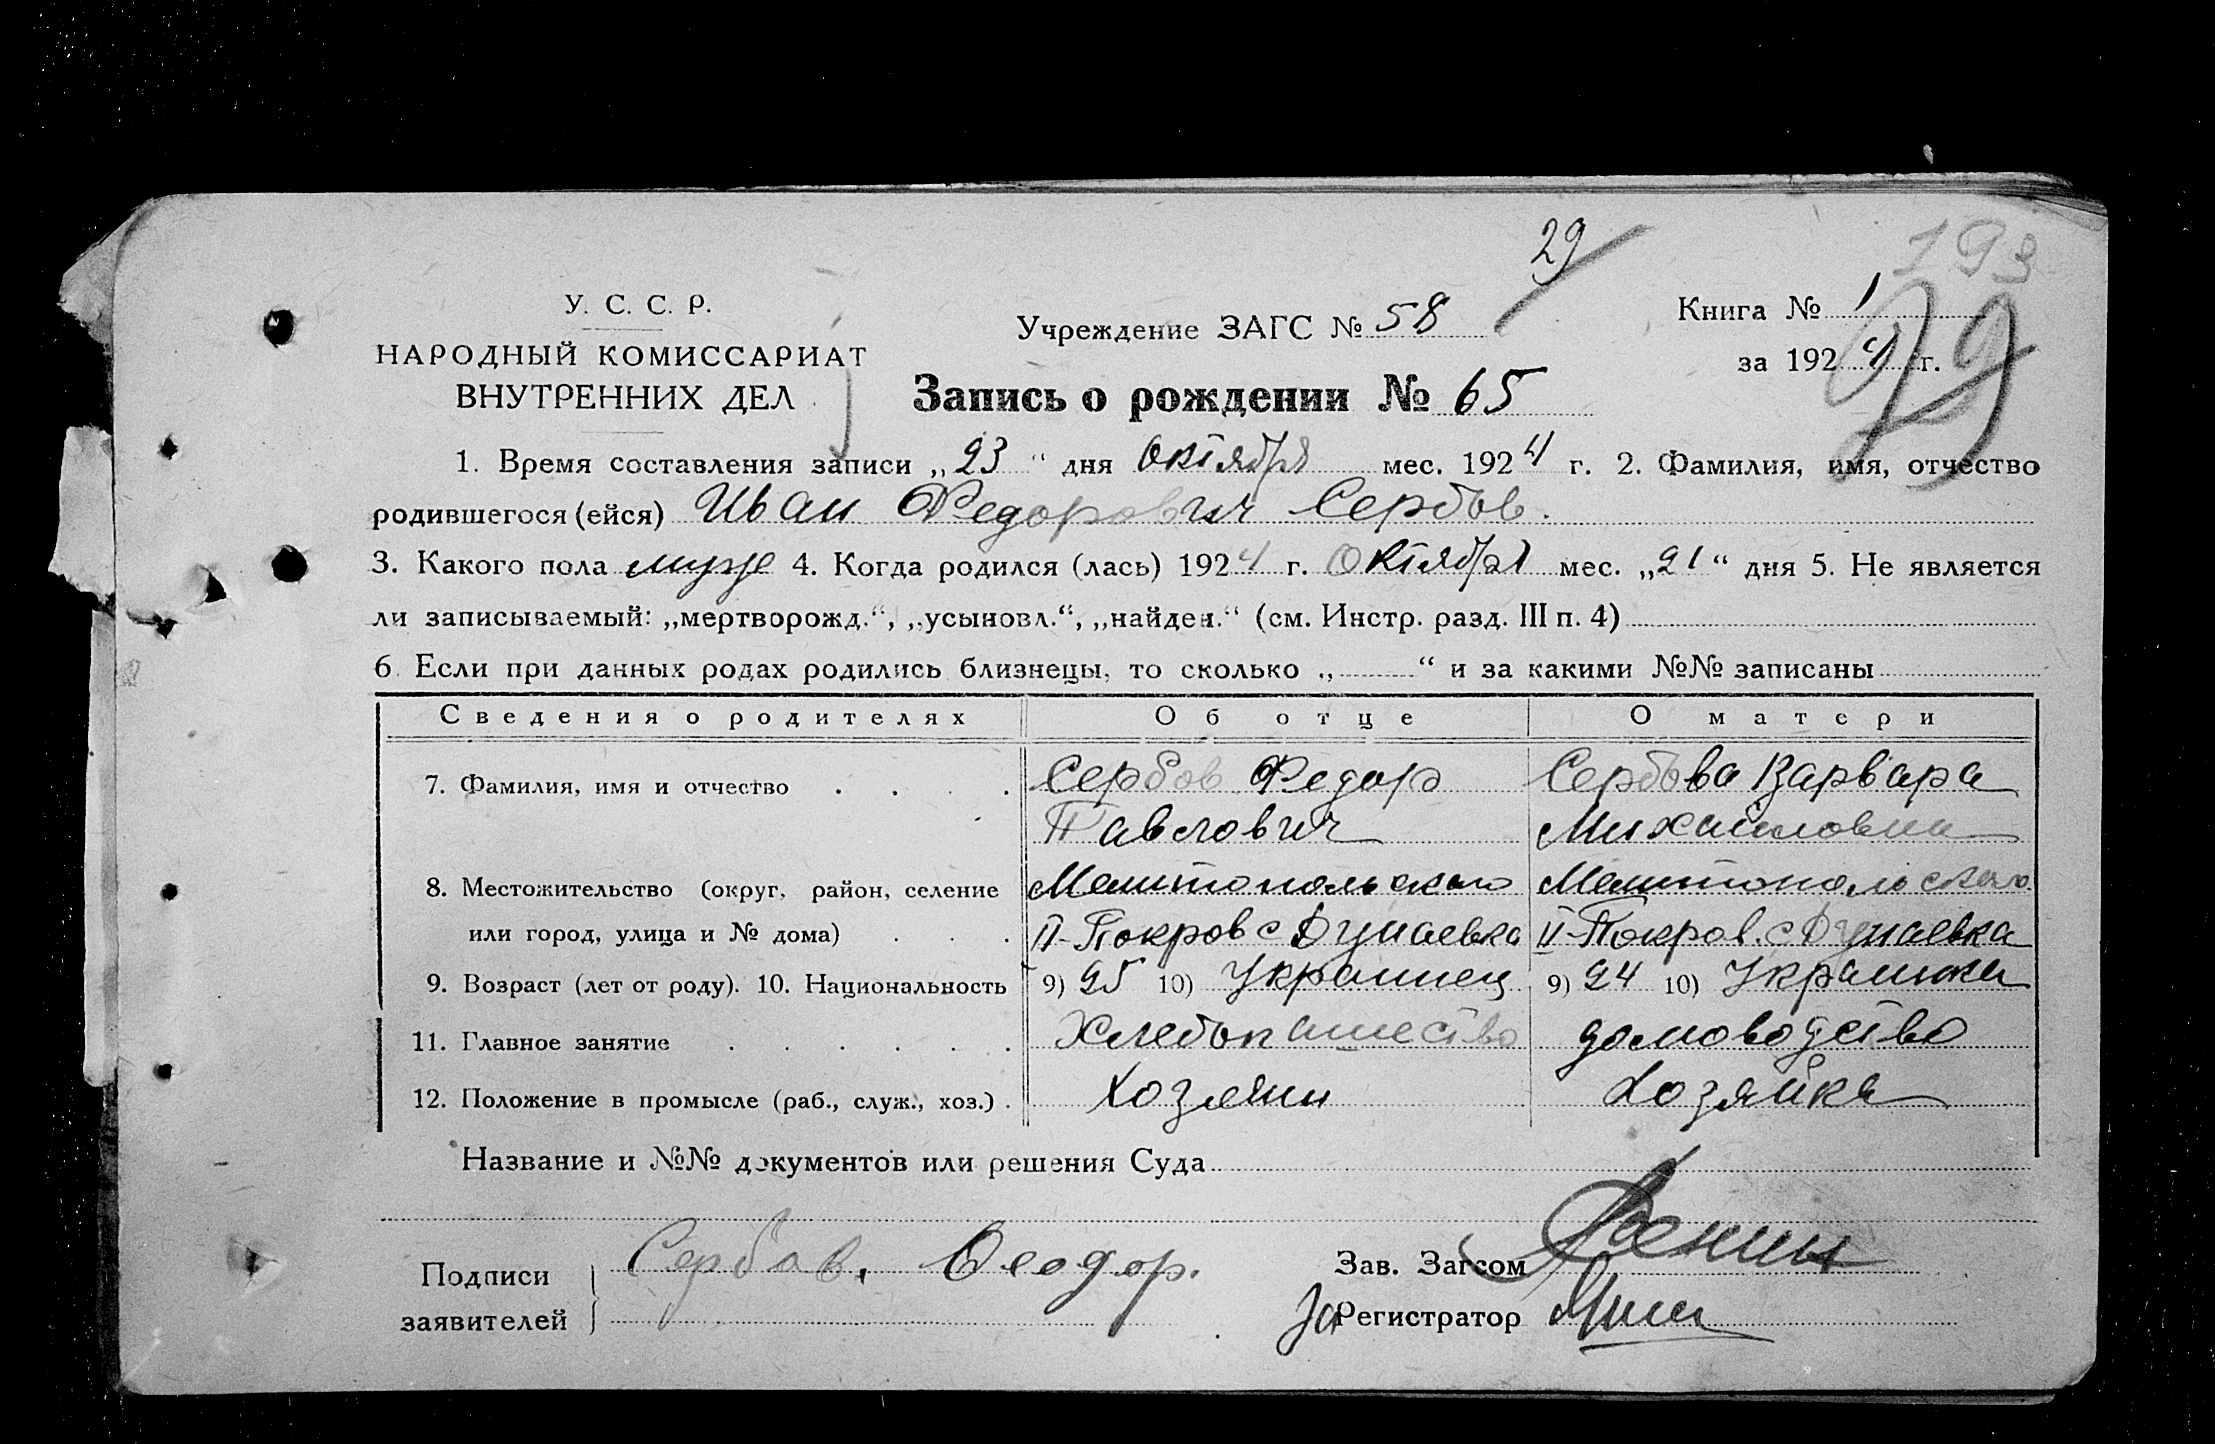 29
193
У. С. С. Р.
НАРОДНЫЙ КОМИССАРИАТ
ВНУТРЕННИХ ДЕЛ
Учреждение ЗАГС № 58
Книга № 1
за 1924 г.
29
Запись о рождении № 65
1. Время составления записи „23“ дня Октября мес. 1924 г. 2. Фамилия, имя, отчество
родившегося (ейся) Иван Федорович Сербов.
3. Какого пола муже 4. Когда родился (лась) 1924 г. Октября мес. „21“ дня 5. Не является
ли записываемый: „мертворожд.“, „усыновл.“, „найден.“ (см. Инстр. разд. III п. 4)
6. Если при данных родах родились близнецы, то сколько „ “ и за какими №№ записаны
Сведения о родителях Об отце О матери
7. Фамилия, имя и отчество Сербов Федор Сербова Варвара
Павлович Михайловна
8. Местожительство (округ, район, селение Мелитопольского Мелитопольского
или город, улица и № дома) II-Покров с Дунаевка II-Покров. с Дунаевка
9. Возраст (лет от роду). 10. Национальность 9) 25 10) Украинец 9) 24 10) Украинка
11. Главное занятие Хлебопашество домоводство
12. Положение в промысле (раб., служ., хоз.) Хозяин Хозяйка
Название и №№ документов или решения Суда
Подписи
заявителей
Сербов, Феодор.
Зав. Загсом
За Регистратор